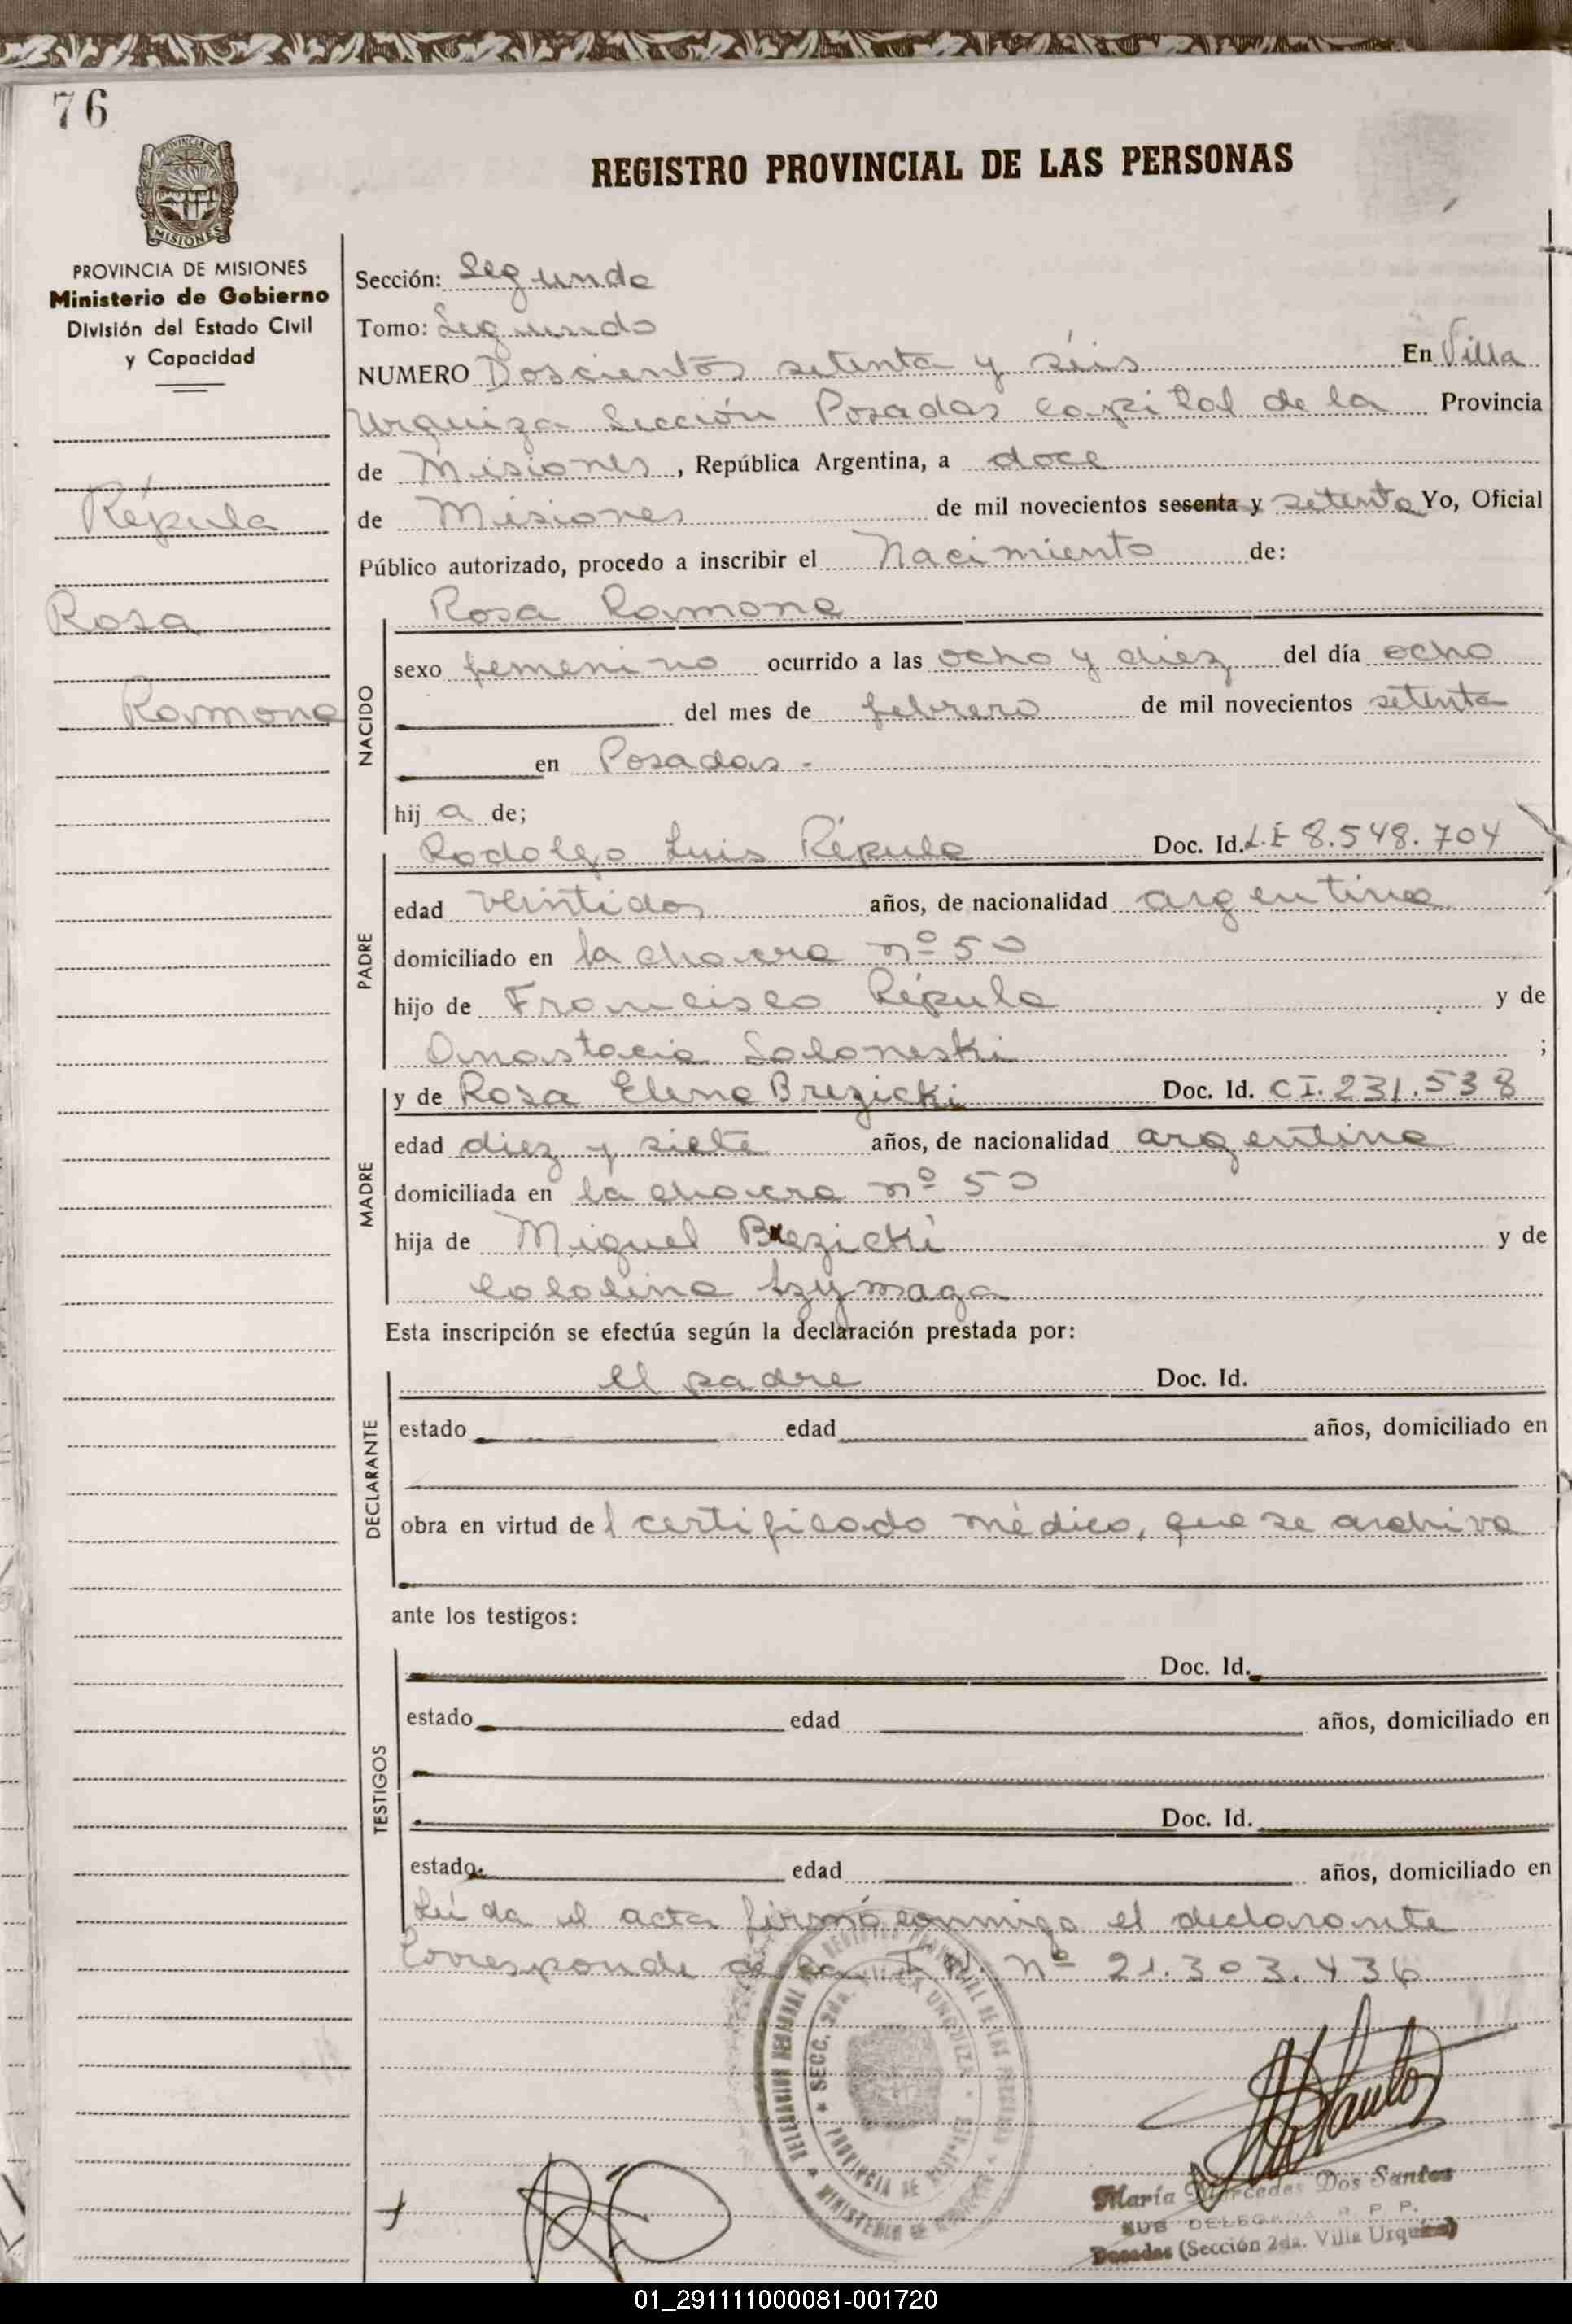 76
REGISTRO PROVINCIAL DE LAS PERSONAS
PROVINCIA DE
MISIONES
PROVINCIA DE MISIONES
Ministerio de Gobierno
División del Estado Civil
y Capacidad
Répula
Rosa
Ramona
Sección: Segunda
Tomo: Segundo
NUMERO Doscientos setenta y séis En Villa
Urquiza Sección Posadas capital de la Provincia
de Misiones, República Argentina, a doce
de Misiones de mil novecientos sesenta y setenta Yo, Oficial
Público autorizado, procedo a inscribir el Nacimiento de:
Rosa Ramona
NACIDO
sexo femenino ocurrido a las ocho y diez del día ocho
del mes de febrero de mil novecientos setenta
en Posadas -
hij a de;
PADRE
Rodolfo Luis Répula Doc. Id. L.E 8.548.704
edad veintidos años, de nacionalidad argentina
domiciliado en la chacra nº 50
hijo de Francisco Répula y de
Anastacia Saloneski ;
MADRE
y de Rosa Elena Brezicki Doc. Id. CI. 231.538
edad diez y siete años, de nacionalidad argentina
domiciliada en la chacra nº 50
hija de Miguel Brezicki y de
Szymaga
Esta inscripción se efectúa según la declaración prestada por:
DECLARANTE
el padre Doc. Id.
estado edad años, domiciliado en
obra en virtud de l certificado médico, que se archiva
ante los testigos:
TESTIGOS
Doc. Id.
estado edad años, domiciliado en
Doc. Id.
estado edad años, domiciliado en
Leída el acta firmó conmigo el declarante
Corresponde a la I.N. Nº 21.303.436
SECC. 2da. VILLA URQUIZA
PROVINCIA DE MISIONES
MINISTERIO DE GOBIERNO
DELEGACION REGIONAL DEL REGISTRO PROVINCIAL DE LAS PERSONAS
María Mercedes Dos Santos
SUB DELEGADA R. P. P.
Posadas (Sección 2da. Villa Urquiza)
01_291111000081-001720